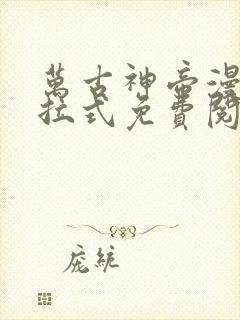 萬古神帝漫
拉式免費閱
庞統